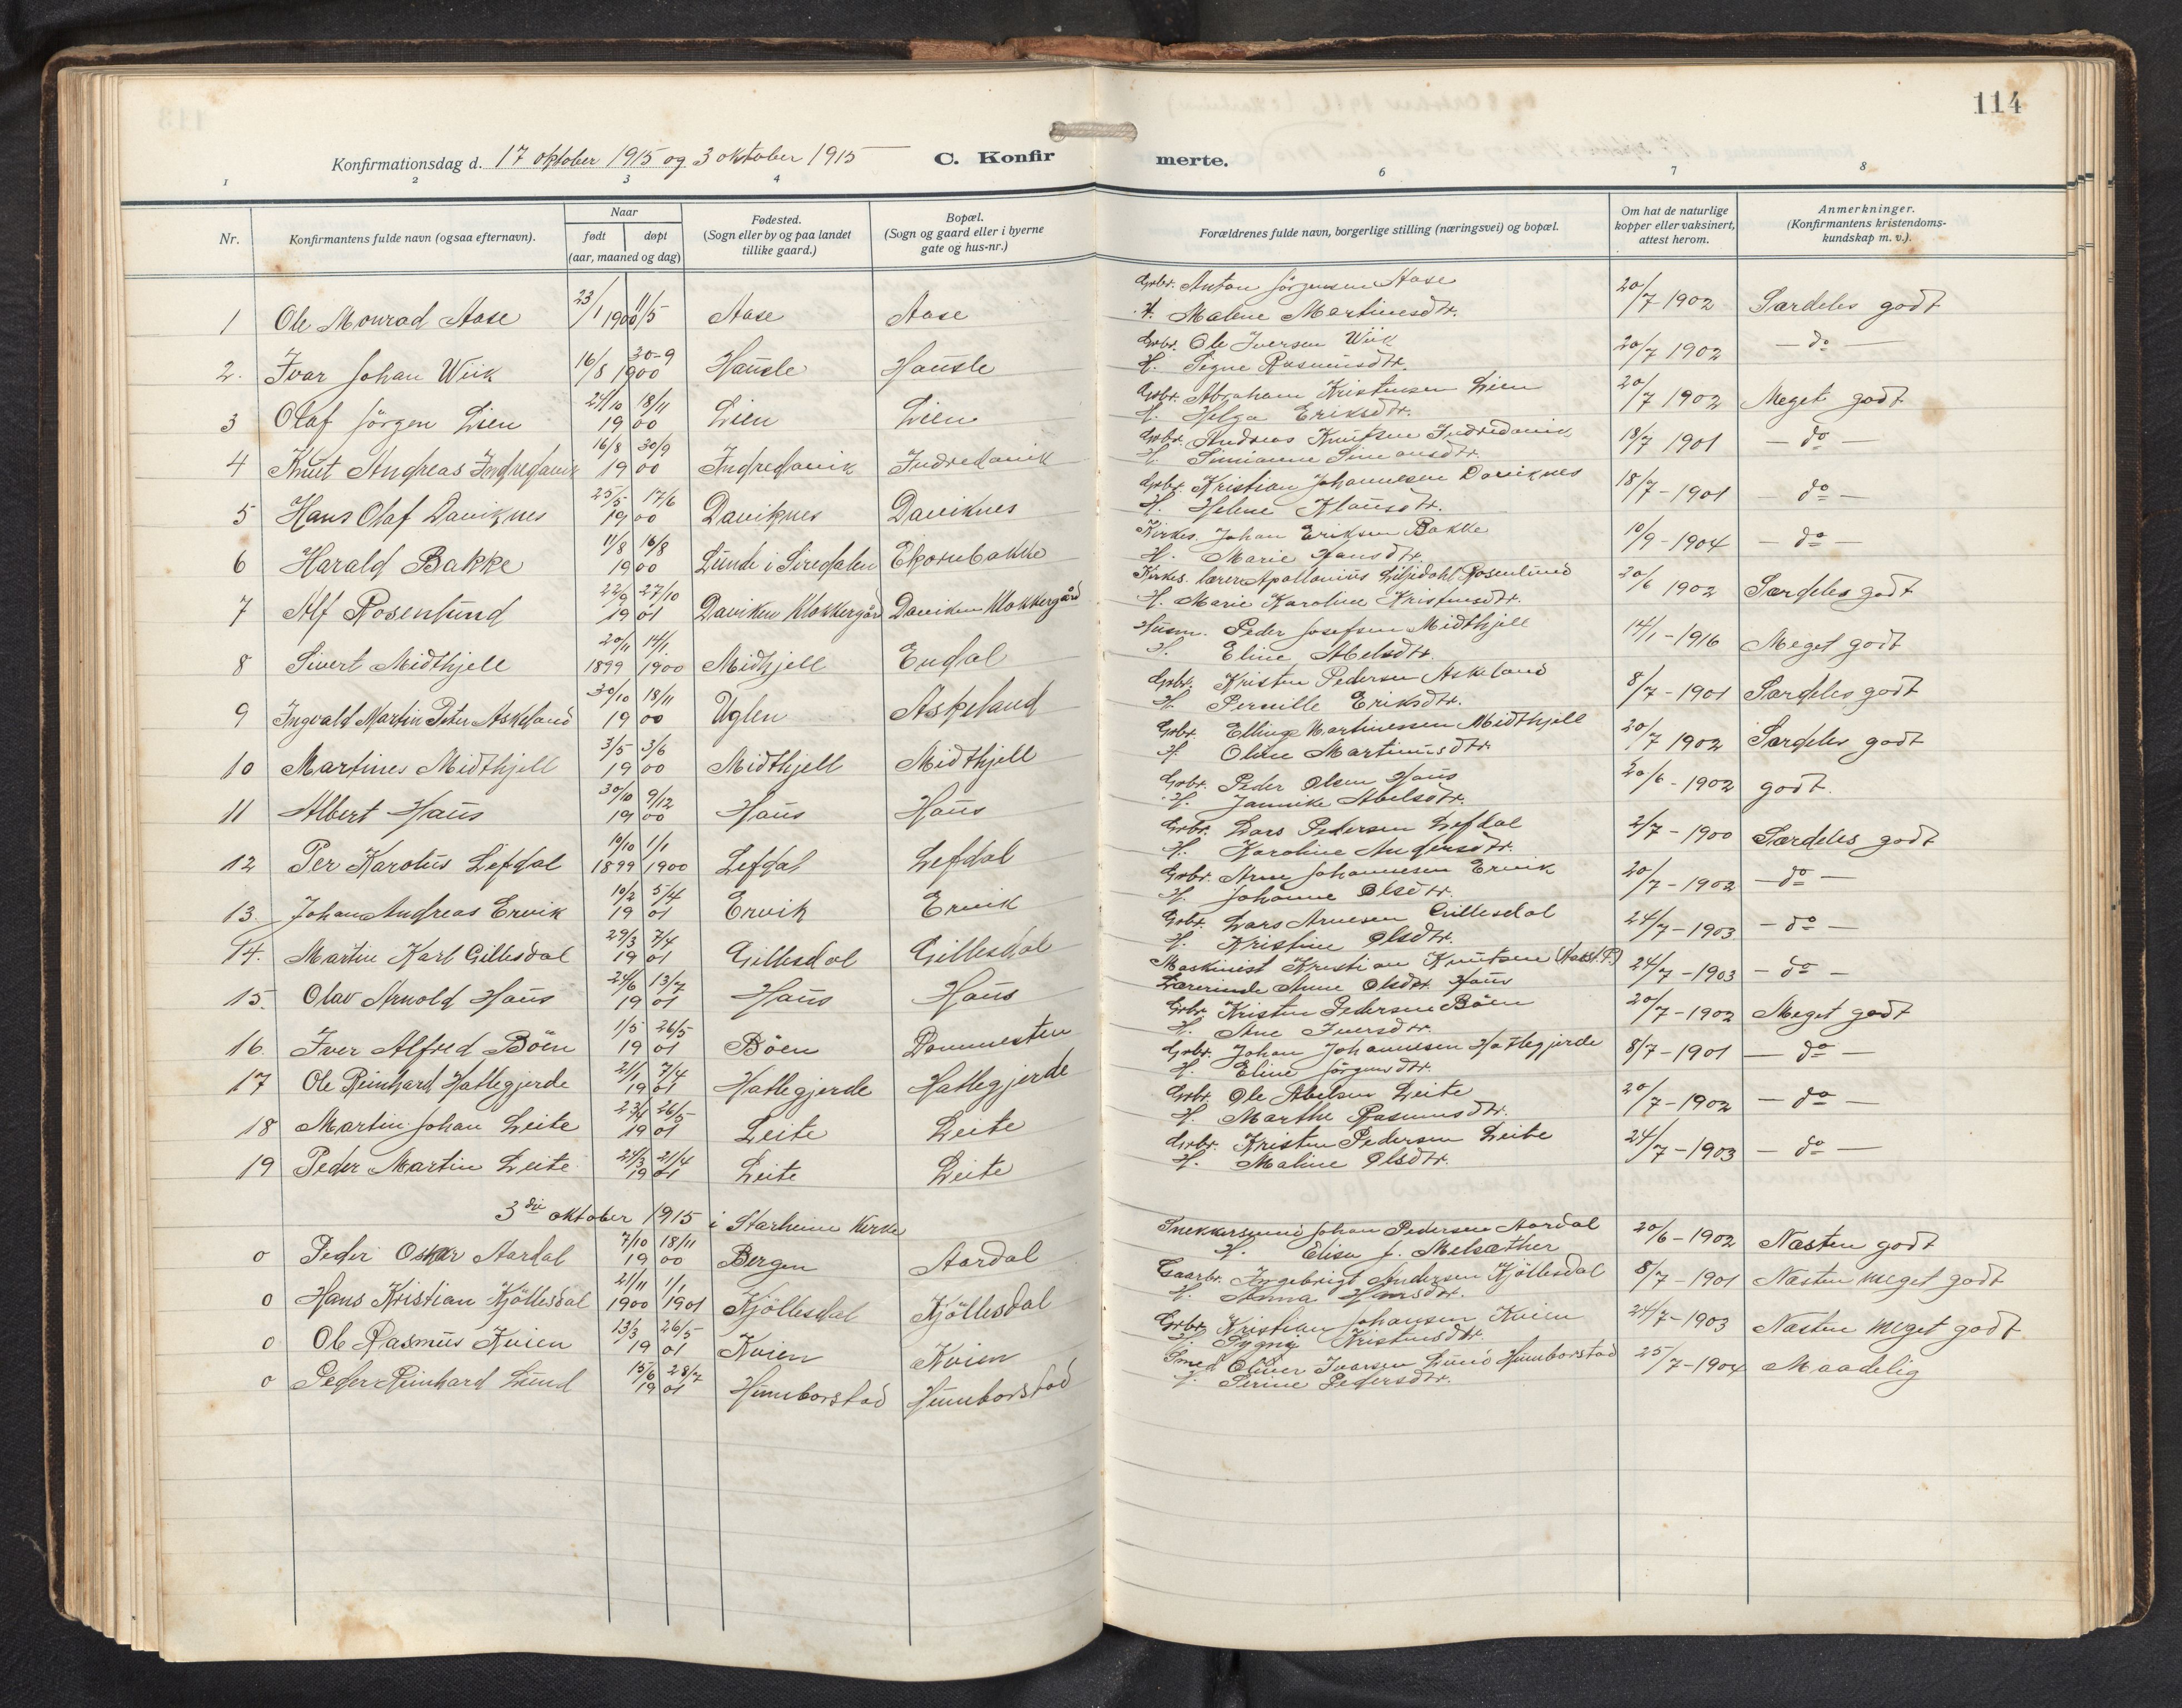 114
Konfirmationsdag d. 17 oktober 1915 og 3 oktober 1915 C. Konfir merte.
1 2 3 4 6 7 8
Nr. Konfirmantens fulde navn (ogsaa efternavn). Naar født døpt (aar, maaned og dag) Fødested. (Sogn eller by og paa landet tillike gaard.) Bopæl. (Sogn og gaard eller i byerne gate og hus-nr.) Forældrenes fulde navn, borgerlige stilling (næringsvei) og bopæl. Om hat de naturlige kopper eller vaksinert, attest herom. Anmerkninger. (Konfirmantens kristendomskundskap m. v.).
1 Ole Monrad Aase 23/1 1900 11/5 Aase Aase Grbr. Anton Jørgensen Aase H. Malene Martinesdtr. 20/7 1902 Særdeles godt
2. Ivar Johan Wiik 16/8 30-9 1900 Hausle Hausle Grbr. Ole Iversen Wiik H. Signe Rasmusdtr. 20/7 1902 – do –
3 Olaf Jörgen Lien 24/10 18/11 1900 Lien Lien Grbr. Abraham Kristensen Lien H. Helga Eriksdtr. 20/7 1902 Meget godt
4 Knut Andreas Indredavik 16/8 30/9 1900 Indredavik Indredavik Grbr. Andreas Knutsen Indredavik H. Simianne Simonsdtr. 18/7 1901 – do –
5 Hans Olaf Daviknes 25/5 17/6 1900 Daviknes Daviknes Grbr. Kristian Johannesen Daviknes H. Helene Klausdtr. 18/7 – 1901 – do –
6 Harald Bakke 11/8 16/8 1900 Lunde i Siredalen Ekornbakke Kirkes. Johan Eriksen Bakke H. Marie Hansdtr. 10/9 – 1904 – do –
7 Alf Rosenlund 22/9 27/10 1901 Daviken Klokkergård Daviken Klokkergård Kirkes. lærer Apollonius Liljedahl Rosenlund H. Marie Karoline Kristensdtr. 30/6 1902 Særdeles godt
8 Sivert Midthjell 20/11 14/1. 1899 1900 Midhjell Endal Husm. Peder Josefsen Midthjell H. Eline Abelsdtr. 14/1 – 1916 Meget godt
9 Ingvald Martin Peter Askeland 30/10 18/11 1900 Uglen Askeland Grbr. Kristen Pedersen Askeland H. Pernille Eriksdtr. 8/7 – 1901 Særdeles godt
10 Martines Midthjell 3/5 3/6 1900 Midthjell Midthjell Grbr. Elling Martinessen Midthjell H Oline Martinusdtr 20/7 1902 Særdeles godt
11 Albert Haus 30/10 9/12 1900 Haus Haus Grbr. Peder Olsen Haus H. Jannike Abelsdtr. 20/6 – 1902 godt.
12 Per Karolus Lefdal 10/10 1/1 1899 1900 Lefdal Lefdal Grbr. Lars Pedersen Lefdal H. Karoline Andersdtr. 2/7 – 1900 Særdeles godt
13. Johan Andreas Ervik 10/2 5/4 1901 Ervik Ervik Grbr. Arne Johannesen Ervik H. Johanne Olsdtr. 20/7 – 1902 – do –
14. Martin Karl Gillesdal 29/3 7/4 1901 Gillesdal Gillesdal Grbr. Lars Arnesen Gillesdal H. Kristine Olsdtr. 24/7 – 1903 – do –
15. Olav Arnold Haus 24/6 13/7 1901 Haus Haus Maskinist Kristian Knutsen Lærerinde Anne Olsdtr. Haus 24/7 – 1903 – do –
16. Iver Alfred Böen 1/5 26/5 1901 Böen Dommesten Grbr. Kristen Pedersen Böen H. Ane Iversdtr. 20/7 – 1902 Meget godt
17 Ole Reinhard Hatlegjerde 2/1 7/4 1901 Hatlegjerde Hatlegjerde Grbr. Johan Johannesen Hatlegjerde H. Eline Jörgensdtr. 8/7 – 1901 – do –
18 Martin Johan Leite 23/4 26/5 1901 Leite Leite Grbr. Ole Abelsen Leite H. Marthe Rasmusdtr. 20/7 – 1902 – do –
19 Peder Martin Leite 24/3 21/4 1901 Leite Leite Grbr. Kristen Pedersen Leite H. Maline Olsdtr. 24/7 – 1903 – do –
3die oktober 1915 i Starheim Kirke
o Peder Oskar Aardal 7/10 18/11 1900 Bergen Aardal Snekkersvend Johan Pedersen Aardal H. Elisa f. Melsæther 20/6 – 1902 Næsten godt
o Hans Kristian Kjöllesdal 21/11 1/1 1900 1901 Kjöllesdal Kjöllesdal Gaarbr. Ingebrigt Andersen Kjöllesdal H. Anna Hansdtr. 8/7 – 1901 Næsten meget godt
o Ole Rasmus Kvien 13/3 26/5 1901 Kvien Kvien Grbr. Kristian Johansen Kvien H. Sygni Kristensdtr. 24/7 – 1903 Næsten meget godt
o Peder Reinhard Lund 15/6 28/7 1901 Humborstad Humborstad Smed Oliver Ivarsen Lund Humborstad H. Perine Pedersdtr. 25/7 – 1904 Maadelig